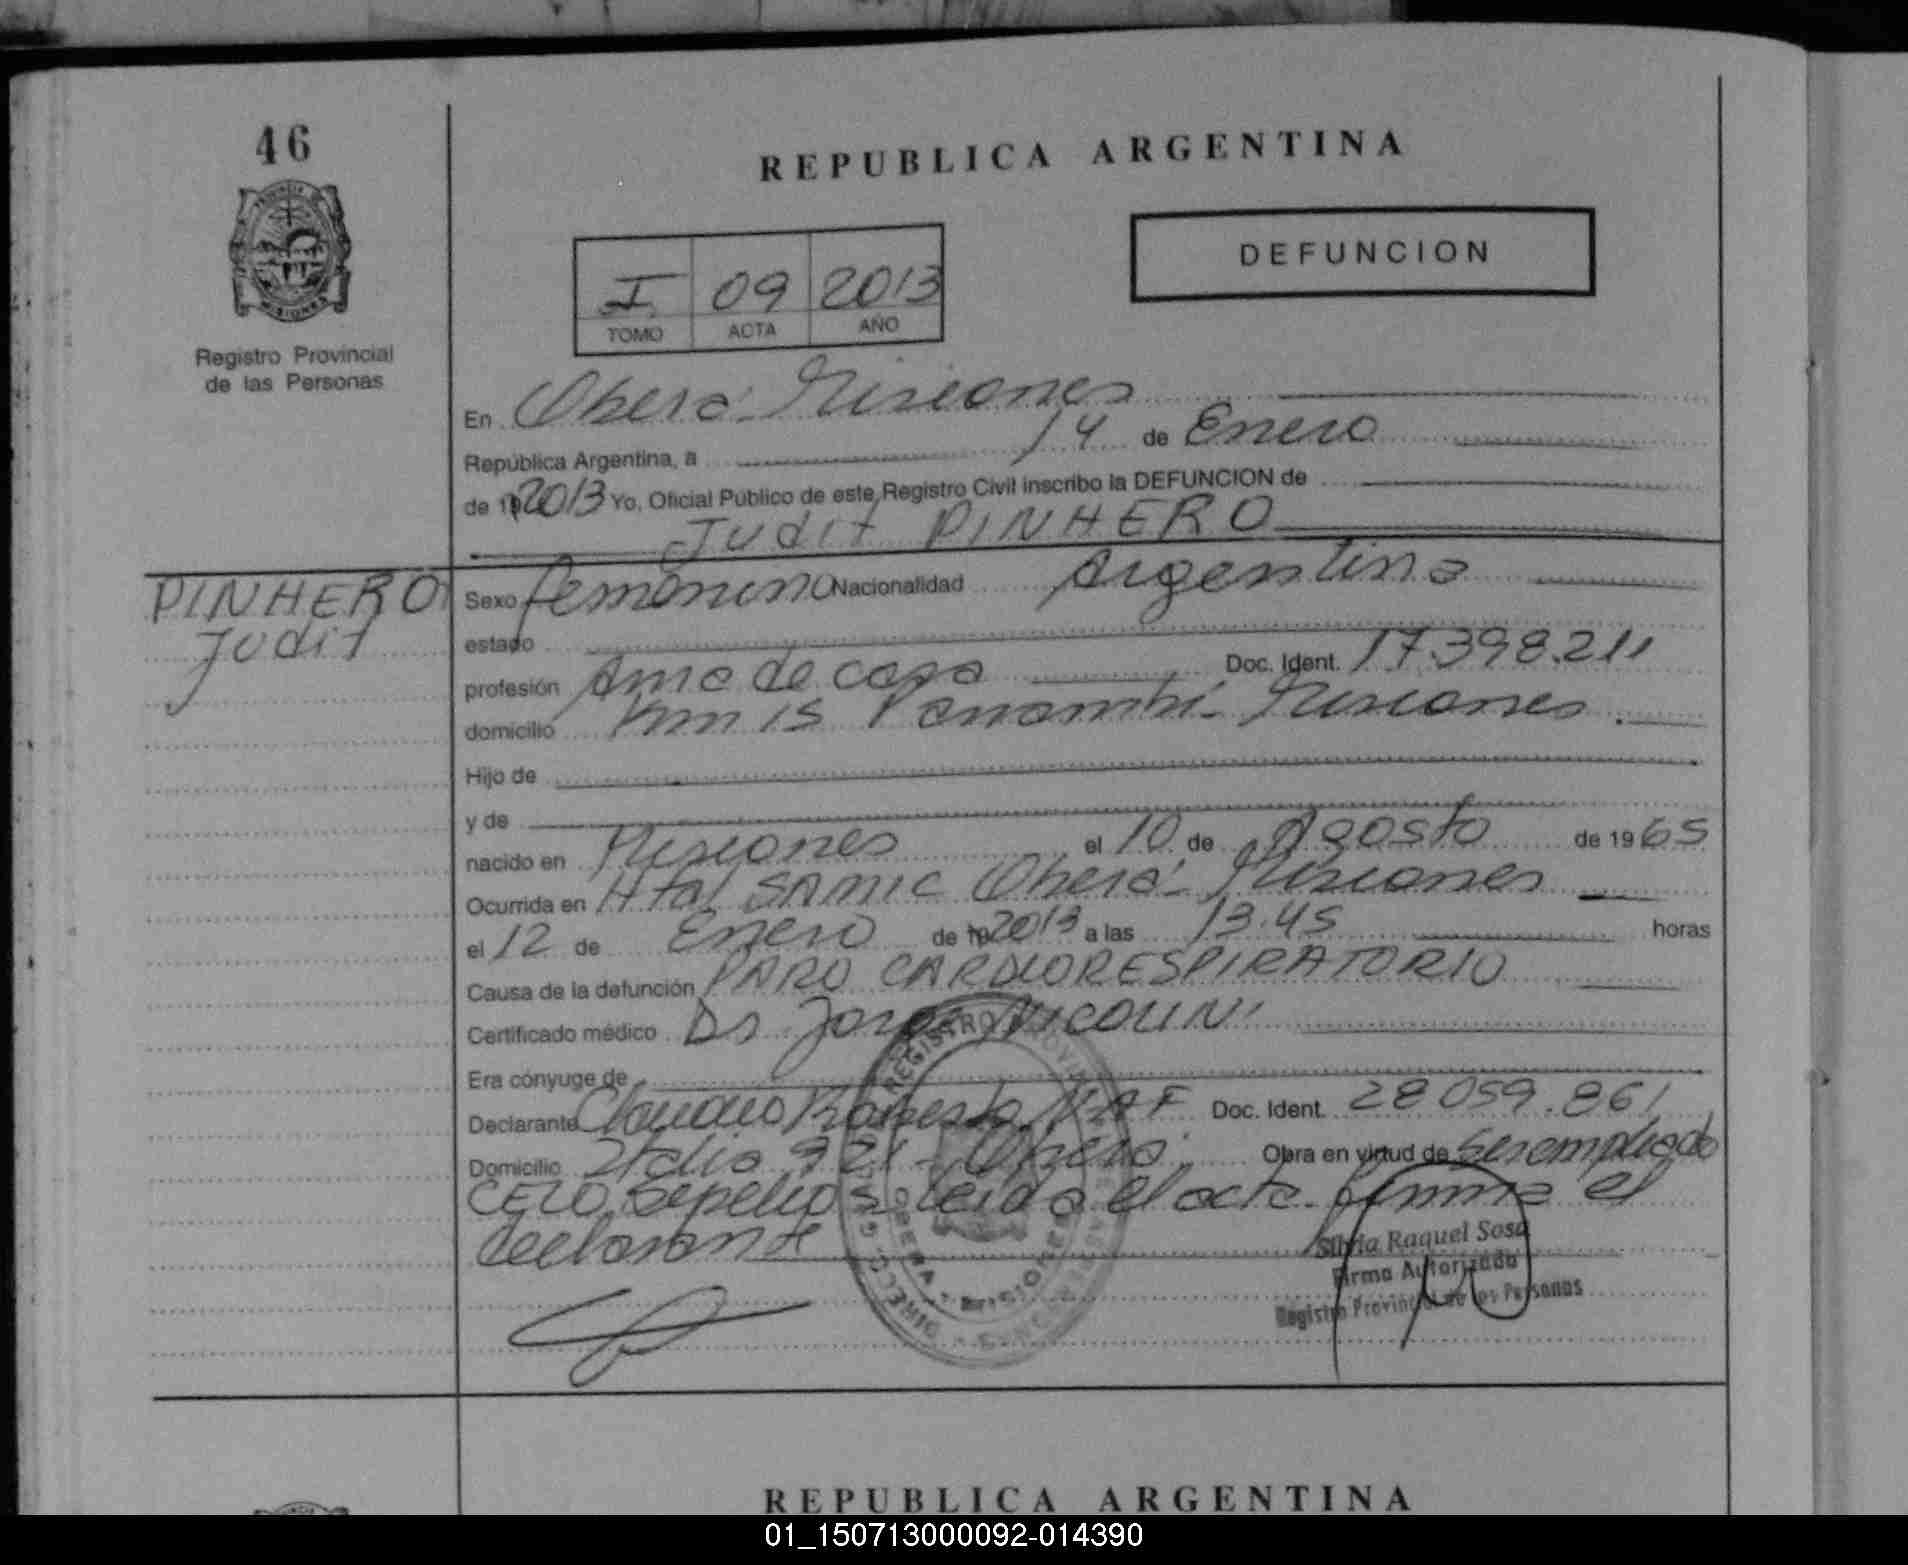 46
REPUBLICA ARGENTINA
DEFUNCION
I 09 2013
TOMO ACTA AÑO
PROVINCIA DE
MISIONES
Registro Provincial
de las Personas
En Oberá - Misiones
República Argentina, a 14 de Enero
de 19 2013 Yo, Oficial Público de este Registro Civil inscribo la DEFUNCION de
Judit PINHERO
PINHERO
Judit
Sexo femenino Nacionalidad Argentina
estado
profesión Ama de casa Doc. Ident. 17.398.211
domicilio Km 15 Panambí - Misiones.
Hijo de
y de
nacido en Misiones el 10 de Agosto de 1965
Ocurrida en Htal SAMIC Oberá - Misiones
el 12 de Enero de 19 2013 a las 13.45 horas
Causa de la defunción PARO CARDIORESPIRATORIO
Certificado médico Dr Jorge NICOLINI
Era cónyuge de
Declarante Claudio Roberto Doc. Ident. 28 059.861
Domicilio Italia 921 - Oberá Obra en virtud de ser empleado
sepelios leida el acta firma el
declarante
REGISTRO PROVINCIAL DE LAS PERSONAS
OBERA - MISIONES
Silvia Raquel Sosa
Firma Autorizada
Registro Provincial de las Personas
REPUBLICA ARGENTINA
01_150713000092-014390